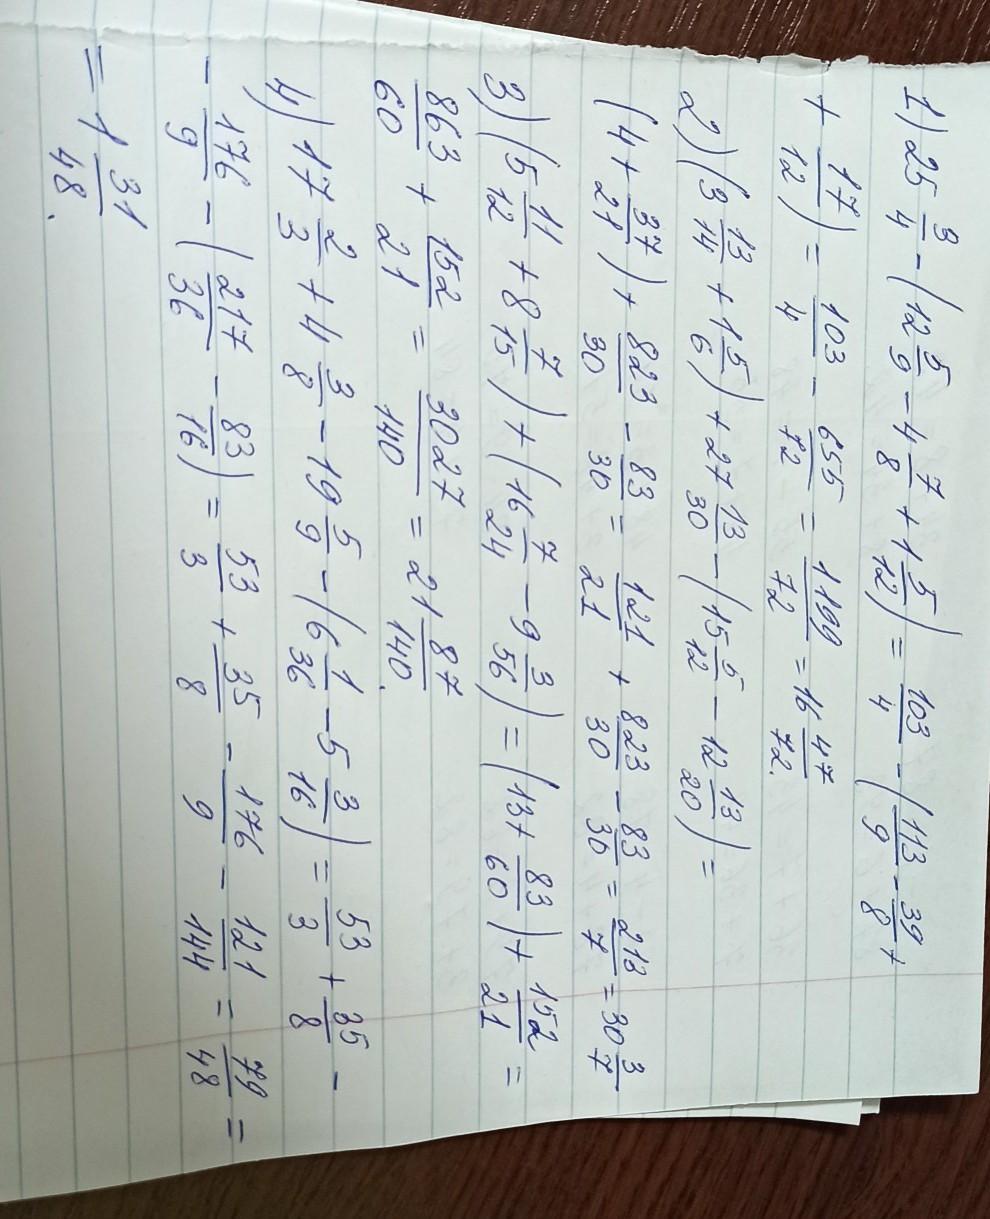 1) 25 3/4 - (12 5/9 - 4 7/8 + 1 5/12) = 103/4 - (113/9 - 39/8 +
+ 17/12) = 103/4 - 655/72 = 1199/72 = 16 47/72.
2) (3 13/14 + 1 5/6) + 27 13/30 - (15 5/12 - 12 13/20) =
(4 + 37/21) + 823/30 - 83/30 = 121/21 + 823/30 - 83/30 = 213/7 = 30 3/7
3) (5 11/12 + 8 7/15) + (16 7/24 - 9 3/56) = (13 + 83/60) + 152/21 =
863/60 + 152/21 = 3027/140 = 21 87/140.
4) 17 2/3 + 4 3/8 - 19 5/9 - (6 1/36 - 5 3/16) = 53/3 + 35/8 -
- 176/9 - (217/36 - 83/16) = 53/3 + 35/8 - 176/9 - 121/144 = 79/48 =
= 1 31/48.